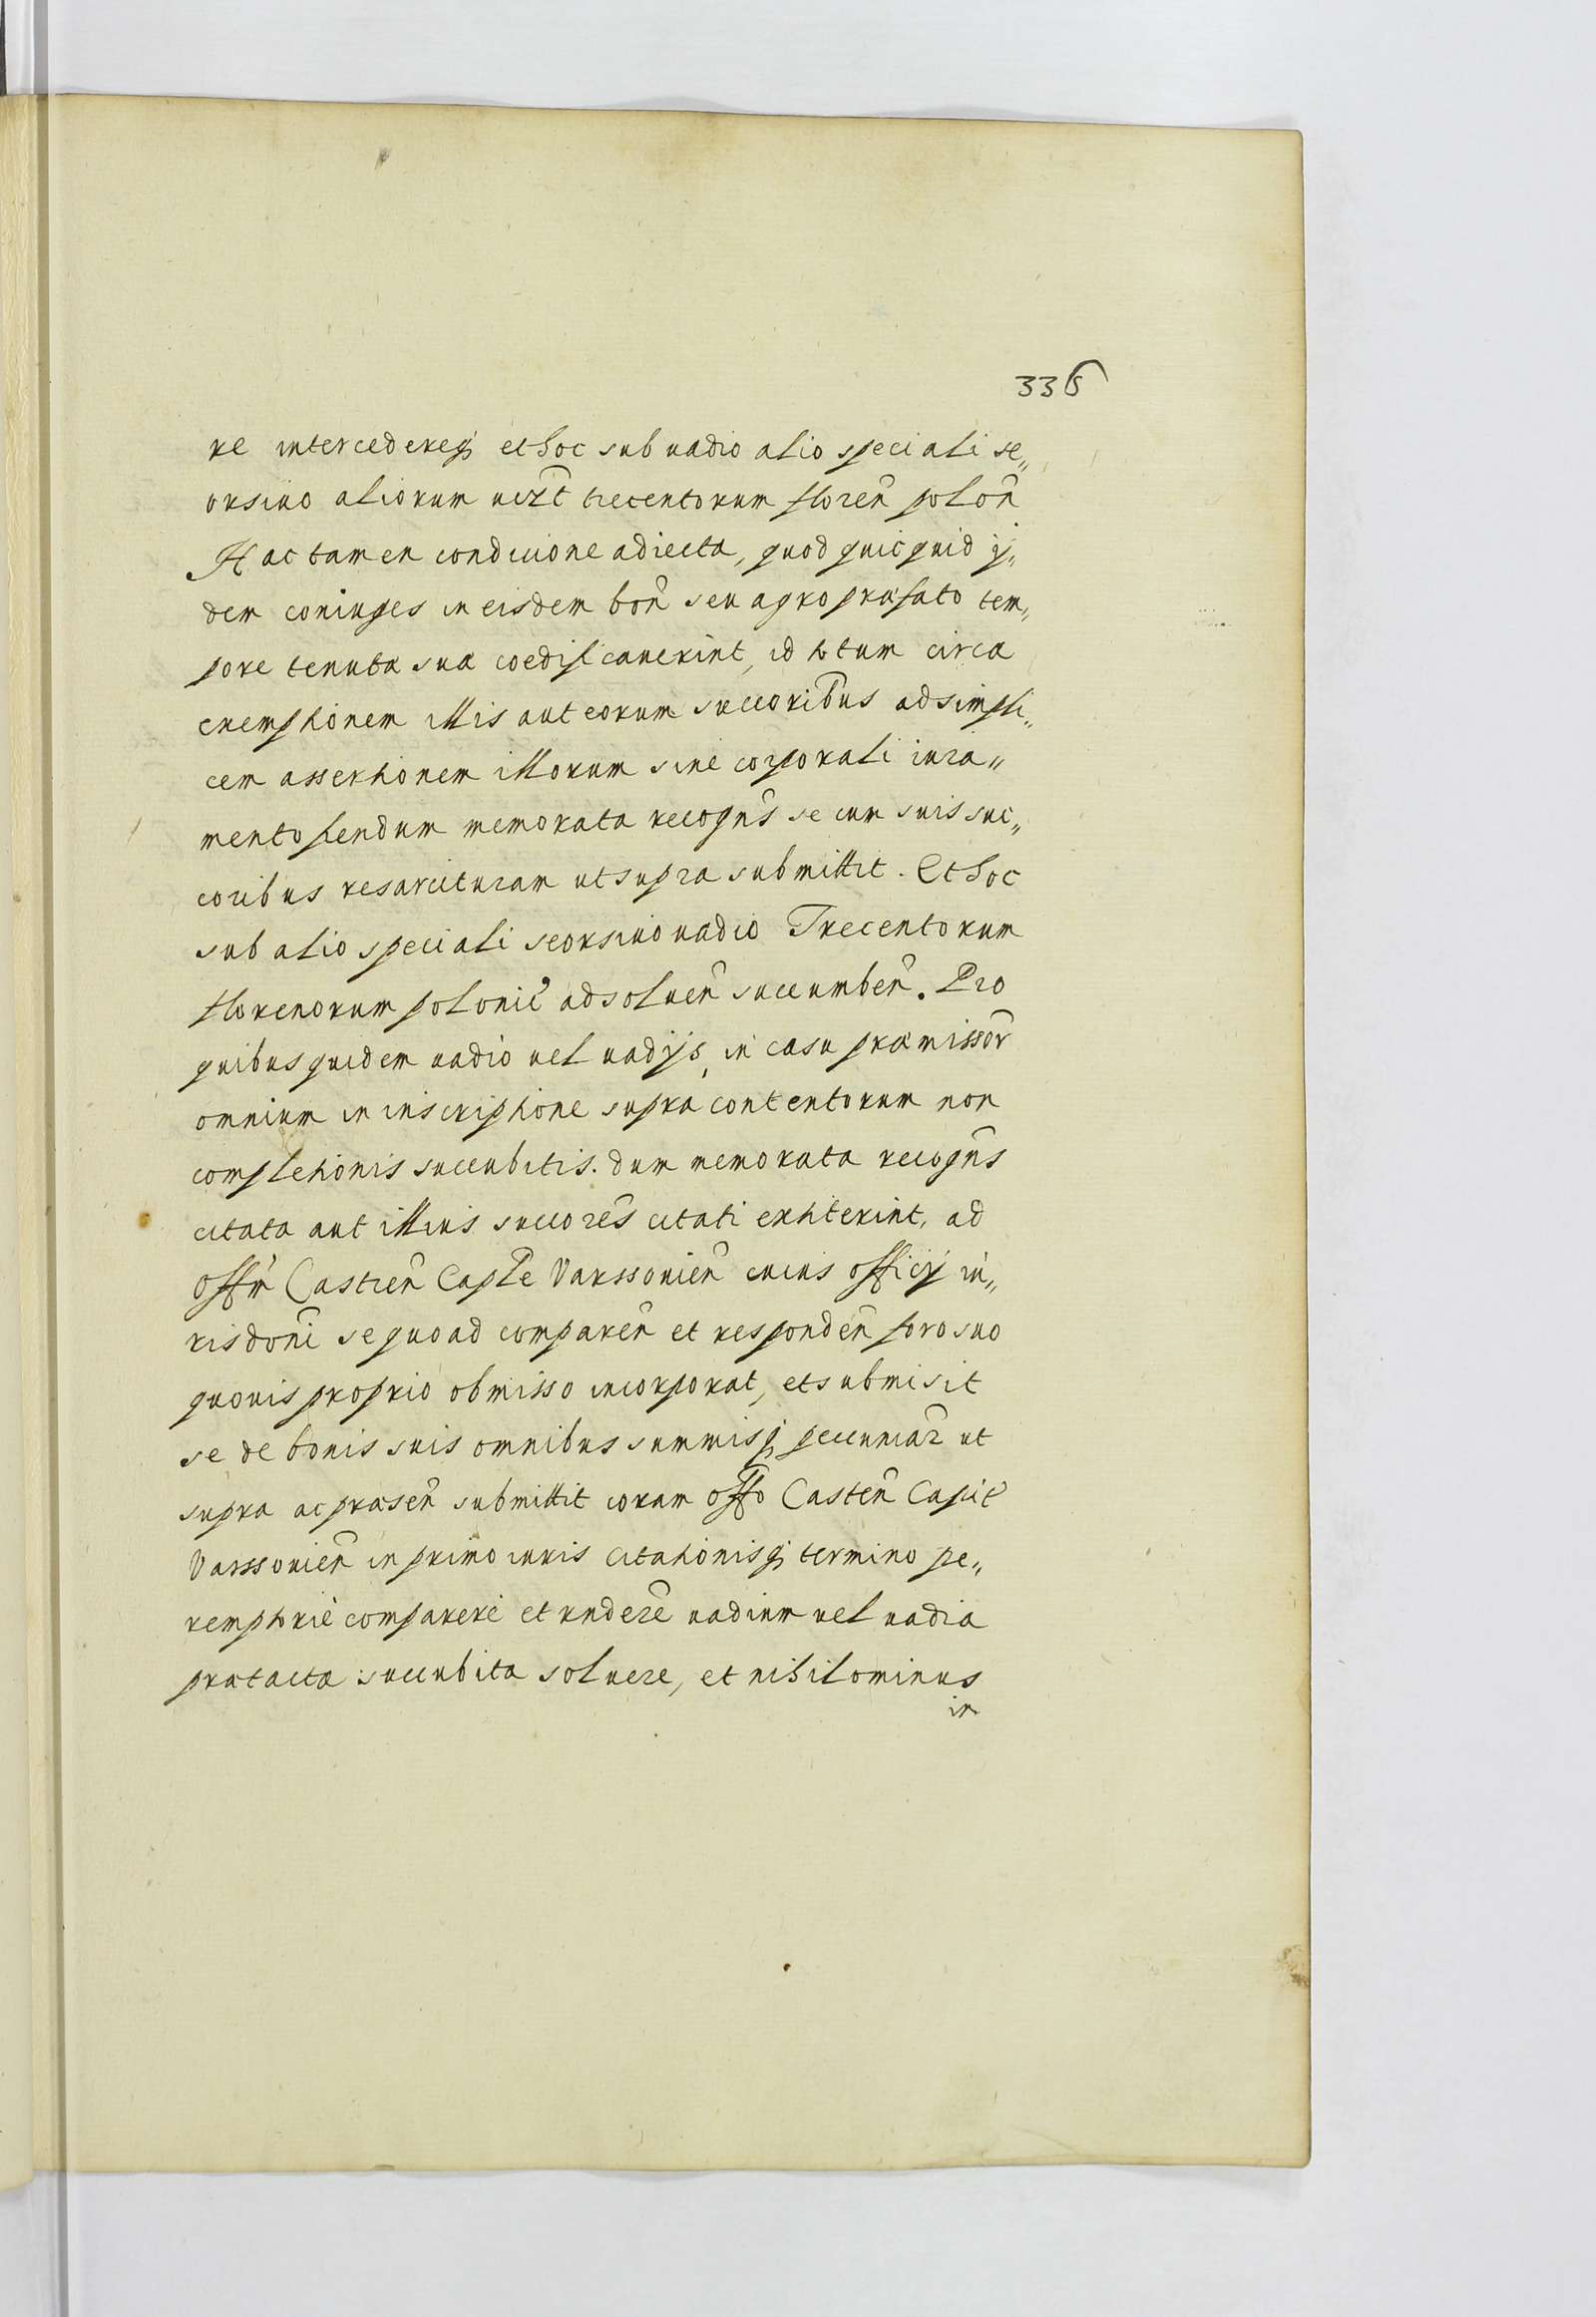 336
re intercedereq́ et hoc sub uadio alio speciali se„
orsiuo aliorum uidzt trecentorum floren̄ polon̄
Hac tamen condicione adiecta, quod quicquid ij„
dem coniuges in eisdem bon̄ seu agro præfato tem„
pore tenutæ suæ coedificauerint, id totum circa
exemptionem illis aut eorum succoribus ad simpli„
cem assertionem illorum sine corporali iura„
mento fiendum memorata recogn̄s se cum suis suc„
coribus resarcituram ut supra submittit. Et hoc
sub alio speciali seorsiuo uadio Trecentorum
florenorum polonić ad soluen̄ succumben̄. Pro
quibus quidem uadio uel uadijs, in casu præmissor̄
omnium in inscriptione supra contentorum non
completionis succubitis. dum memorata recogn̄s
citata aut illius succores̄ citati extiterint, ad
Offm̄ Castren̄ Caplē Varssouien̄ cuius officij iu„
risdoni se quoad comparen̄ et responden̄ foro suo
quouis proprio obmisso incorporat, et submisit
se de bonis suis omnibus summisq́ pecuniar̄ ut
supra ac præsen̄ submittit coram offo Casten̄ Capit̄
Varssouien̄ in primo iuris citationisq́ termino pe„
remptorie comparere et rnderē uadium uel uadia
prætacta succubita soluere, et nihilominus
in